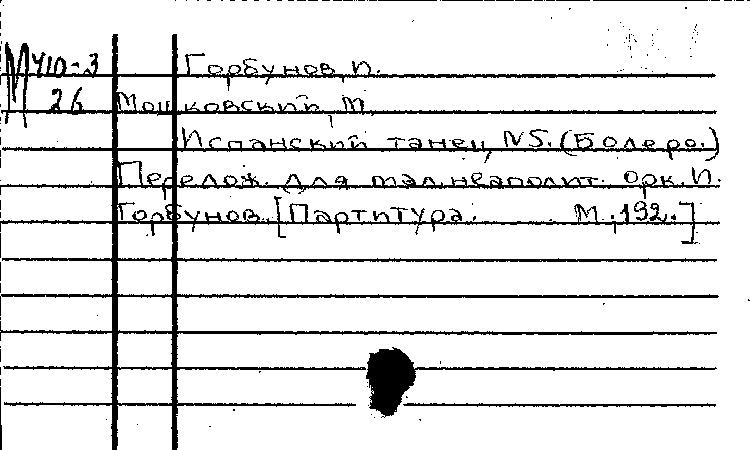 М 410-3 Горбунов, И.
26 Мошковский, М.
Испанский танец, N5. (Болеро.)
Перелож. для мал. неаполит. орк. И.
Горбунов. [Партитура. М., 192.]